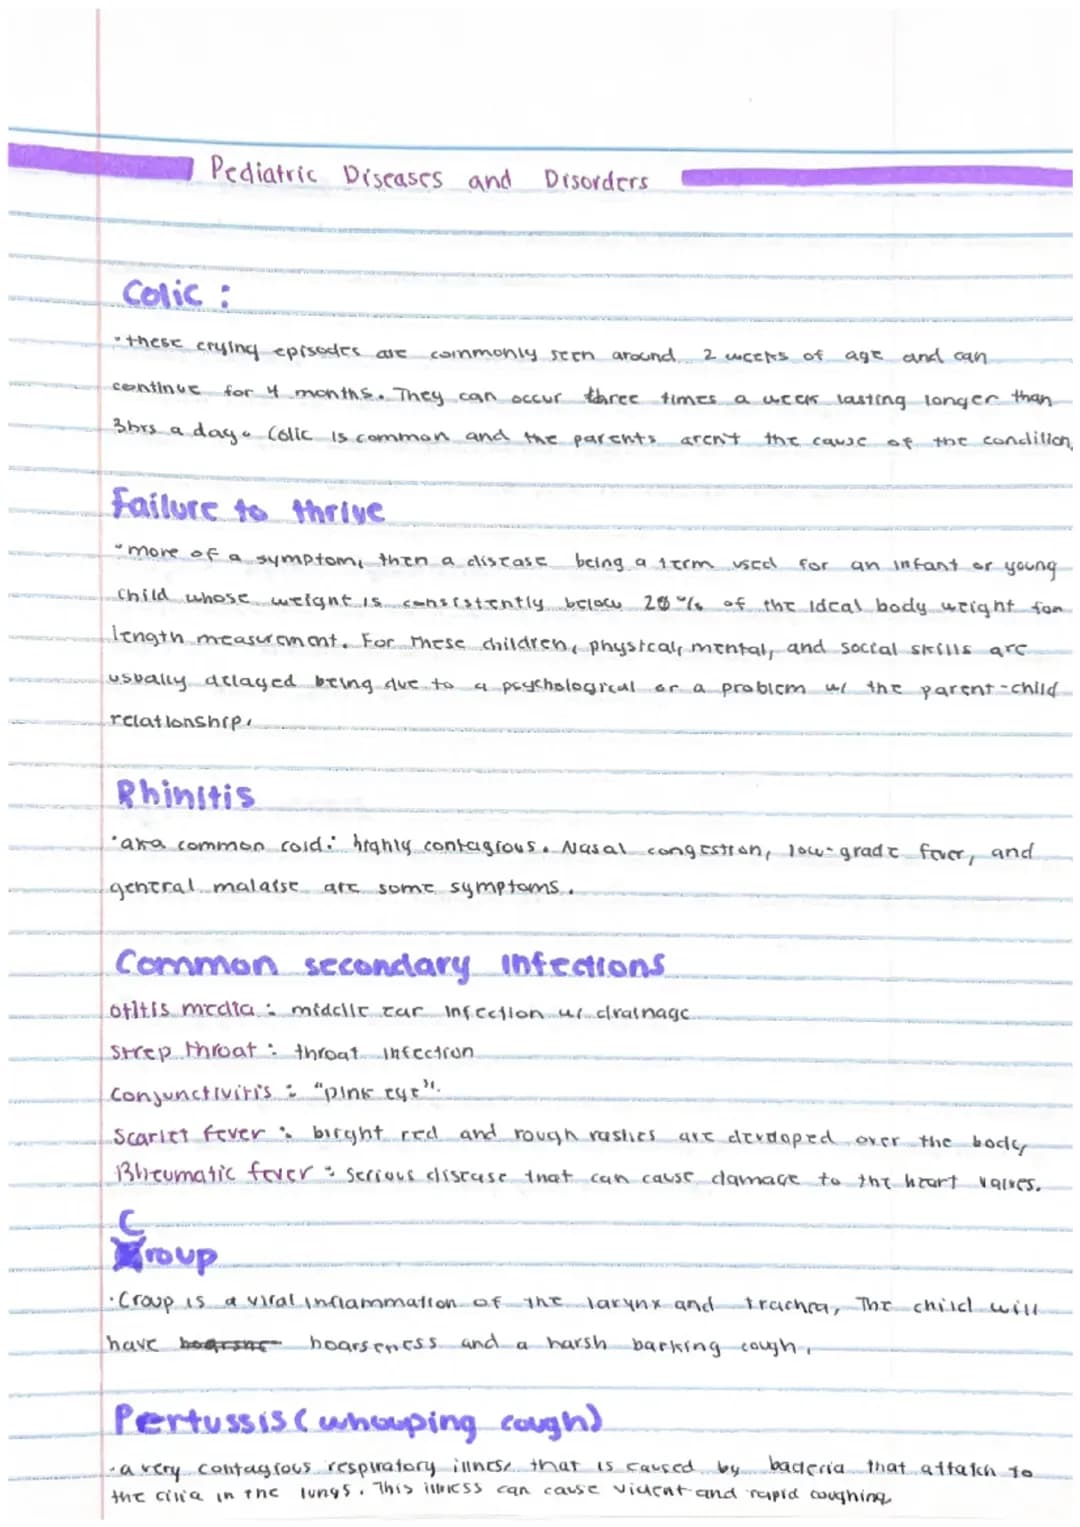 Pediatric Diseases and Disorders
Colic :
• these crying episodes are commonly seen around 2 weeks of age and can
continue for 4 months. They can occur three times a week lasting longer than
3hrs a day. Colic is common and the parents aren't the cause of the condition.
Failure to thrive
• more of a symptom, then a disease being a term used for an infant or young
child whose weight is consistently below 20% of the ideal body weight for
length measurement. For these children, physical, mental, and social skills are
usually delayed being due to a psychological or a problem w/ the parent-child
relationship.
Rhinitis
• aka common cold: highly contagious. Nasal congestion, low-grade fever, and
general malaise are some symptoms.
Common secondary infections
otitis media : middle ear infection w/ drainage
Strep throat : throat infection
Conjunctivitis : "pink eye".
Scarlet fever : bright red and rough rashes are developed over the body
Rheumatic fever : serious disease that can cause damage to the heart valves.
Croup
• Croup is a viral inflammation of the larynx and trachea, The child will
have hoarseness and a harsh barking cough.
Pertussis (whooping cough)
• a very contagious respiratory illness that is caused by bacteria that attatch to
the cilia in the lungs. This illness can cause violent and rapid coughing